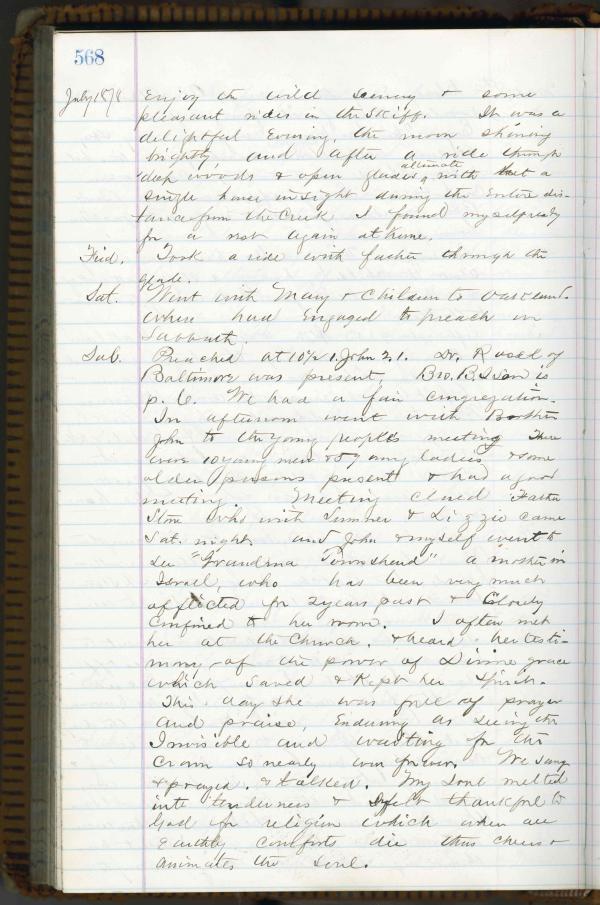 568
July 1878 Enjoy the wild scenery & some
pleasant rides in the skiff. It was a
delightful Evening, the moon shining
brightly, and after a ride through
deep woods & open glades alternate, with but a
single house in sight during the Entire dis-
tance from the Creek I found myself ready
for a rest again at home.
Frid. Took a ride with father through the
glade.
Sat. Went with Mary & Children to
where had Engaged to preach on
Sabbath.
Sab. Preached at 10½ 1. John 2.1. Dr. of
Baltimore was present, Bro. is
p. C. We had a fair congregation.
In afternoon went with Brother
John to the young people's meeting There
were 10 young men & 5 young ladies & some
older persons present & had a good
meeting. Meeting closed Father
Stone who with Sumner & Lizzie came
Sat. night and John & myself went to
see "Grandma Townshend" a mother in
Israel, who has been very much
afflicted for 2 years past & Closely
Confined to her room. I often met
her at the Church, & heard her testi-
mony of the power of Divine grace
which saved & Kept her Spirit.
This day she was full of prayer
and praise, Enduring as seeing the
Invisible and waiting for the
Crown so nearly won forever. We sang
& prayed. & talked. My Soul melted
into tenderness & felt thankful to
God for religion which when all
Earthly Comforts die thus cheers &
animates the soul.